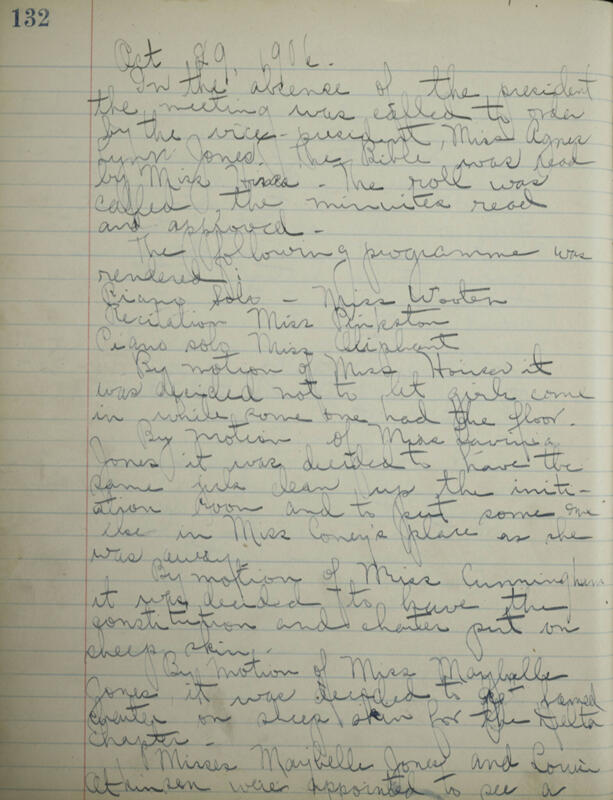 132
Oct 29, 1906.
In the absence of the president
the meeting was called to order
by the vice-president, Miss Agnes
Lynn Jones. The Bible was read
by Miss - The roll was
called, the minutes read
and approved -
The following programme was
rendered:
Piano Solo - Miss Wooten
Recitation Miss Pinkston
Piano solo Miss Oliphant
By motion of Miss Houser it
was decided not to let girls come
in while some one had the floor.
By motion of Miss
Jones it was decided to have the
same girls clean up the initi-
ation room and to put some one
else in Miss Coney's place as she
was away.
By motion of Miss Cunningham
it was decided to have the
constitution and charter put on
sheep skin.
By motion of Miss Maybelle
Jones it was decided to get
charter on sheep skin for the Delta
Chapter -
Misses Maybelle Jones and
Atkinson were appointed to see a